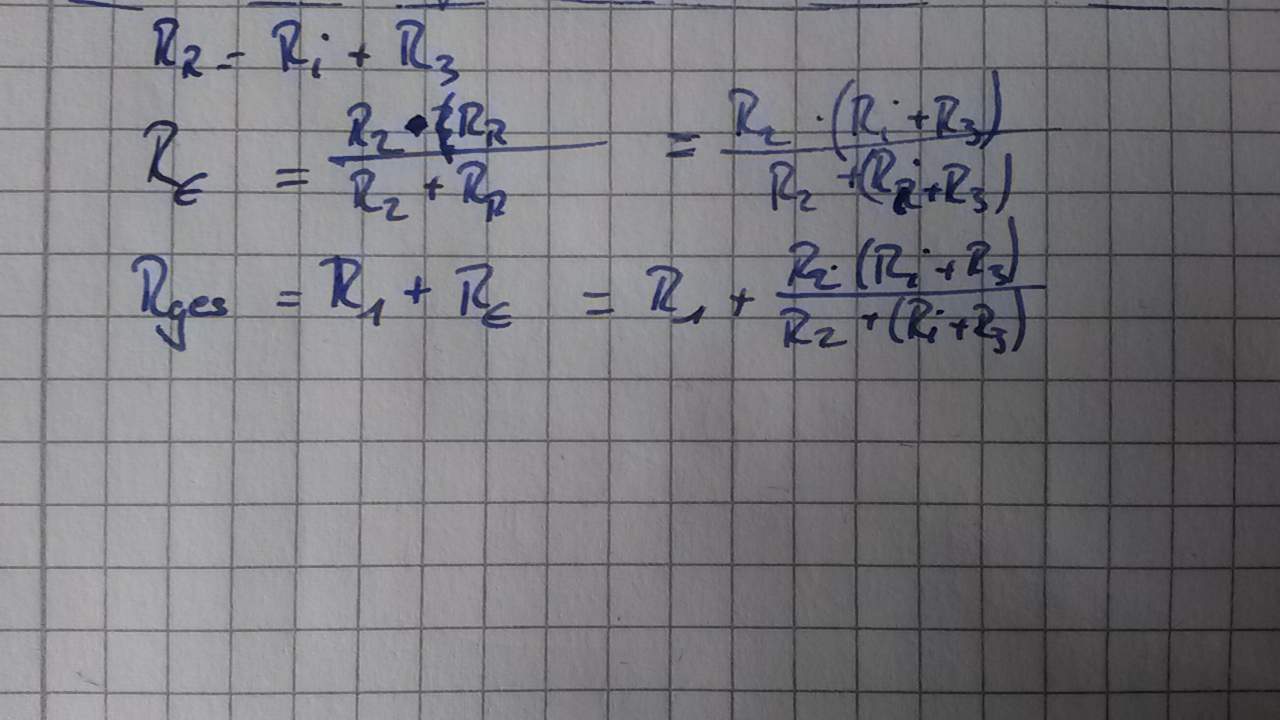 R_R = R_i + R_3
R_E = (R_2 · R_R) / (R_2 + R_R) = (R_2 · (R_i + R_3)) / (R_2 + (R_i + R_3))
R_ges = R_1 + R_E = R_1 + (R_2 · (R_i + R_3)) / (R_2 + (R_i + R_3))